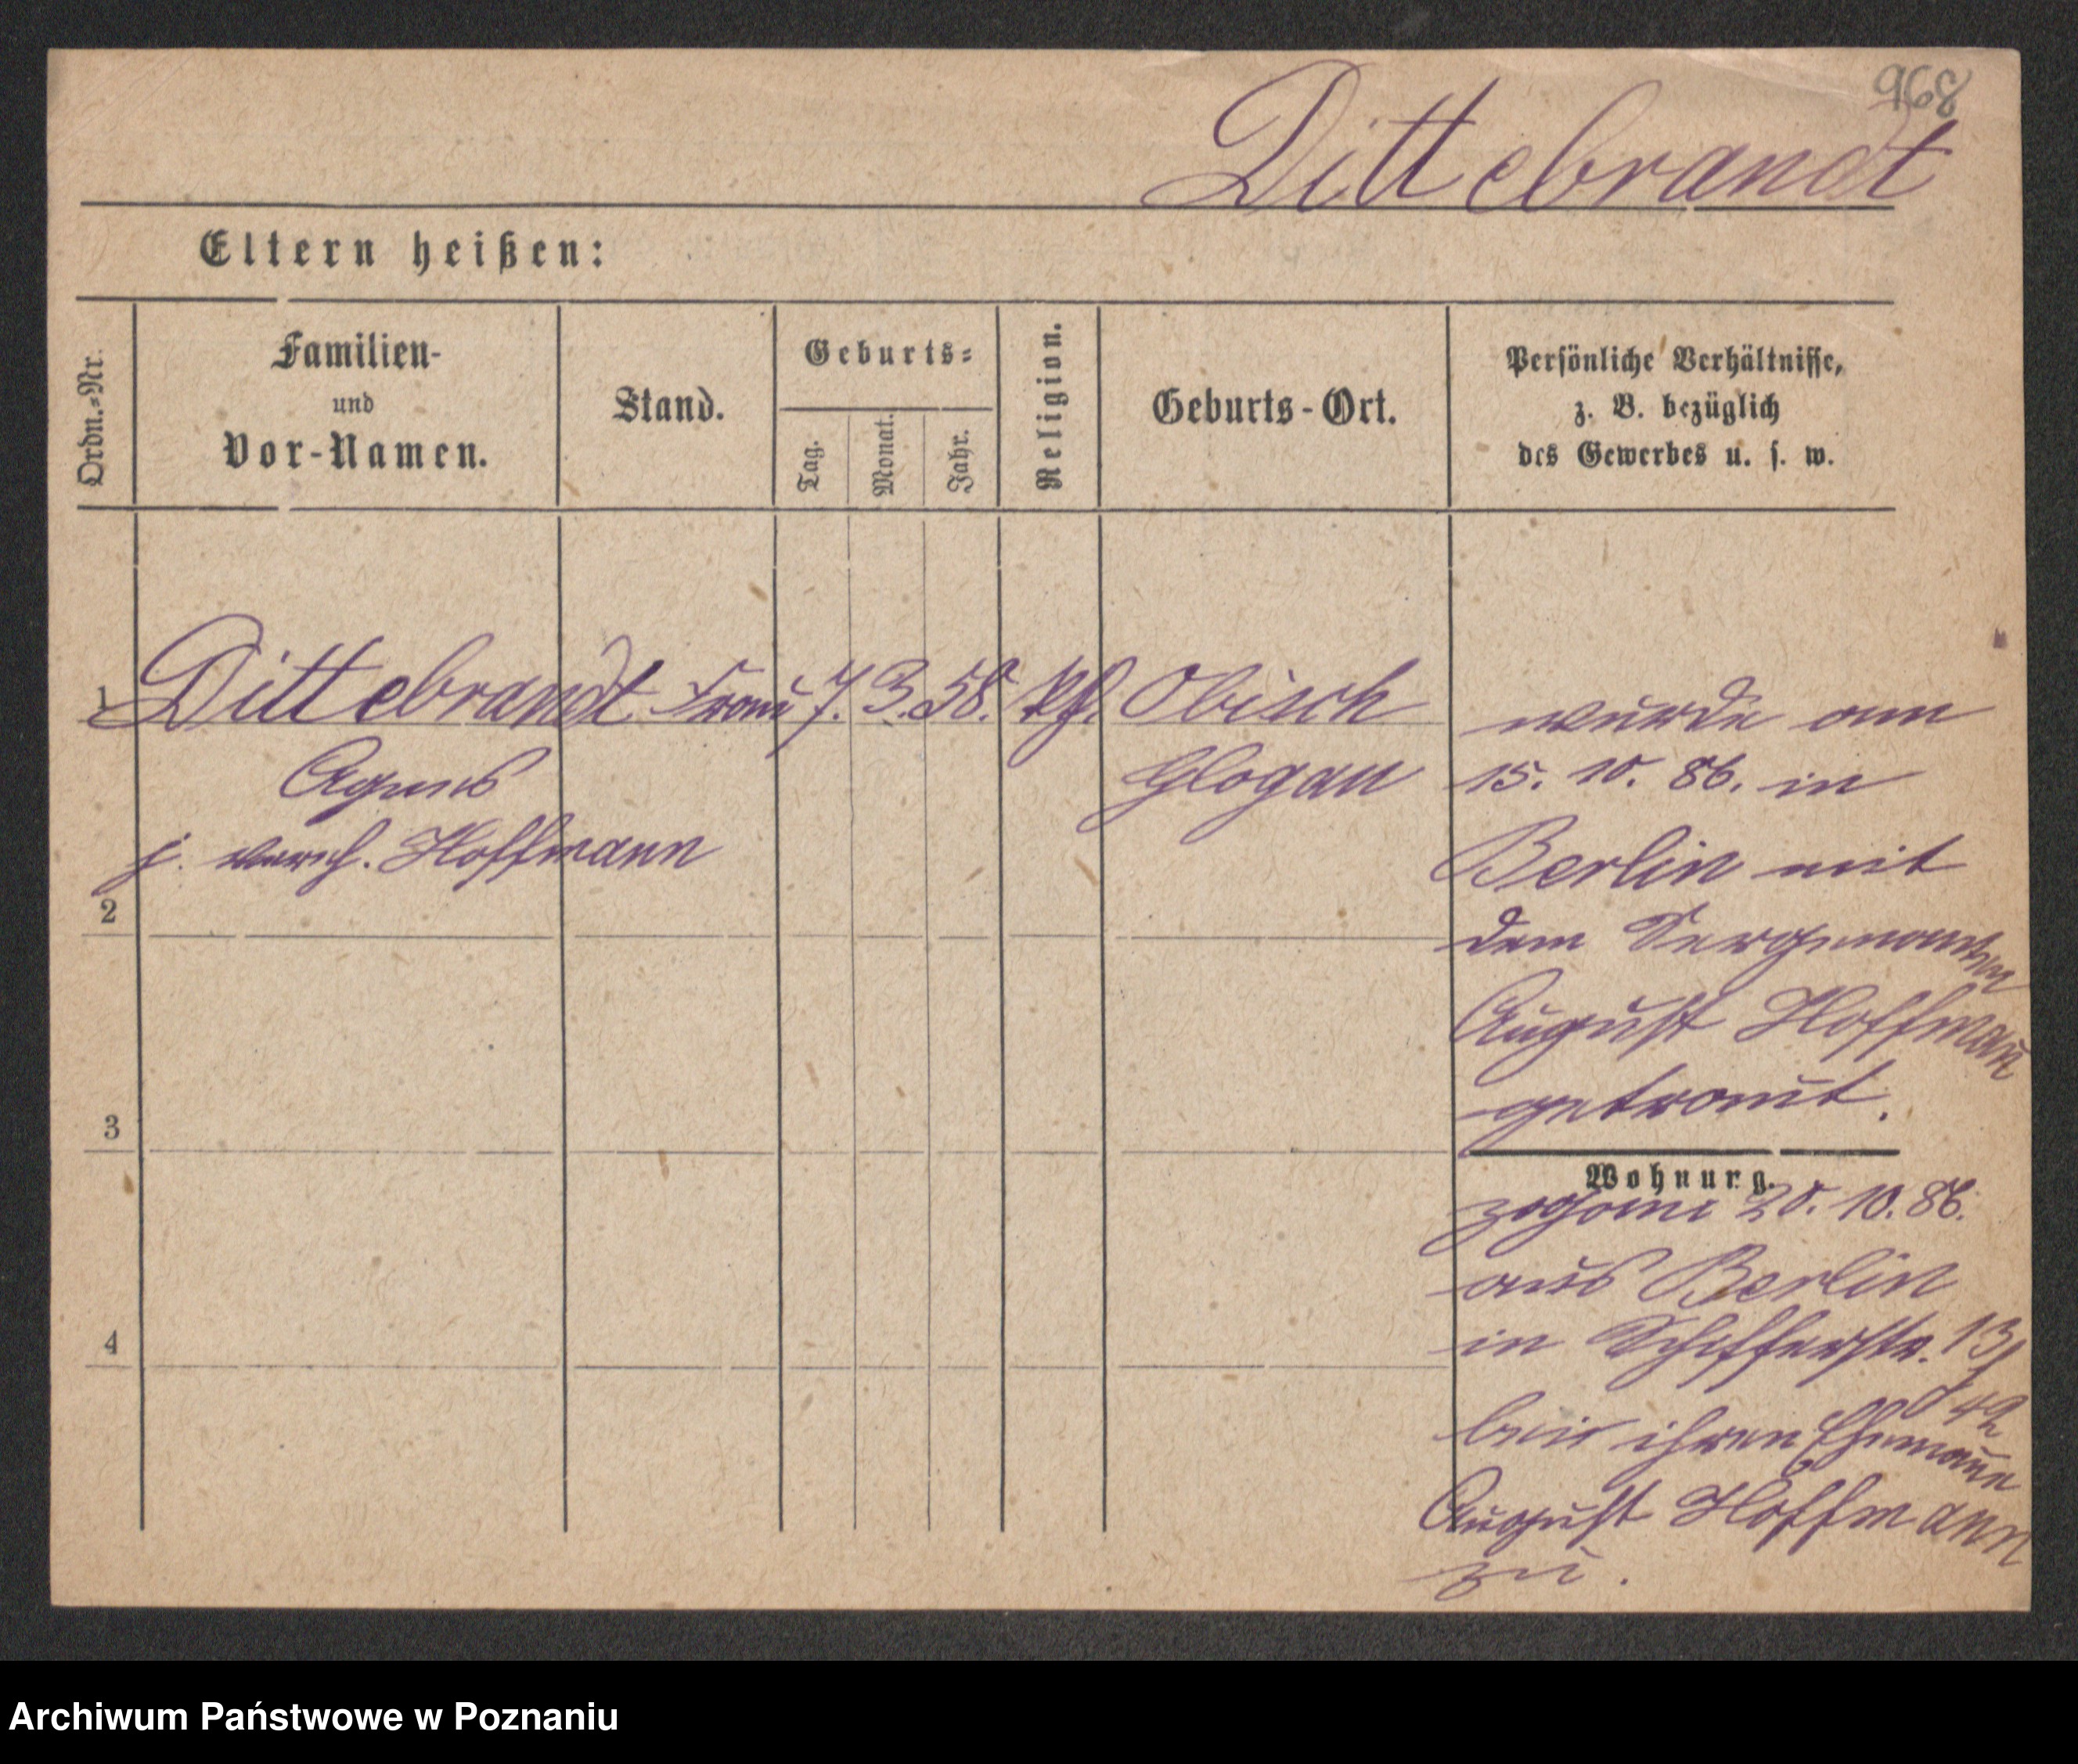 968
Dittebrandt
Eltern heißen:
Ordn.-Nr.
Familien-
und
Vor-Namen.
Stand.
Geburts-
Tag.
Monat.
Jahr.
Religion.
Geburts-Ort.
Persönliche Verhältnisse,
z. B. bezüglich
des Gewerbes u. s. w.
1 Dittebrandt Frau 7. 3. 58. Obisch
Agnes
j. vereh. Hoffmann
Glogau
wurde am
15. 10. 86. in
Berlin mit
dem Sergeanten
August Hoffmann
getraut.
2
3
4
Wohnung.
20. 10. 86.
aus Berlin
in Schifferstr. 13/
bei ihren Ehemann
August Hoffmann
zu.
Archiwum Państwowe w Poznaniu